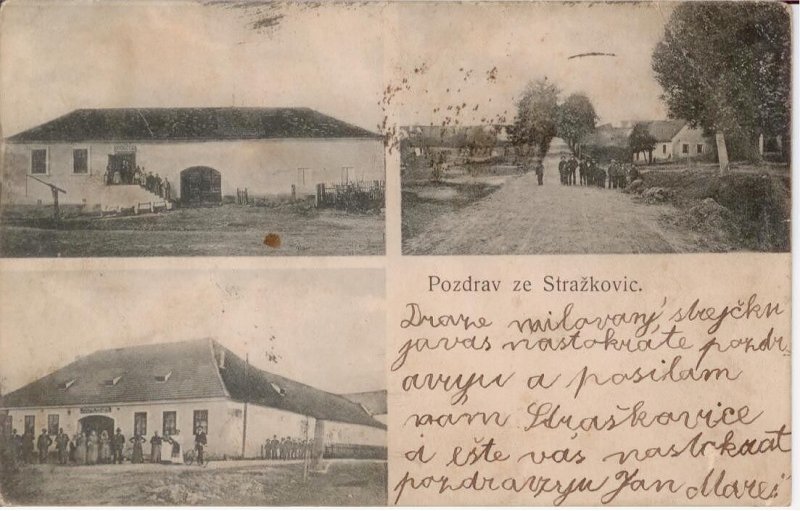 Pozdrav ze Stražkovic.
Draze milovaný strejčku
javas nastokráte pozdr-
avuju a posilam
vám Straškovice
a ešte vás nastokrat
pozdravuju Jan Mareš